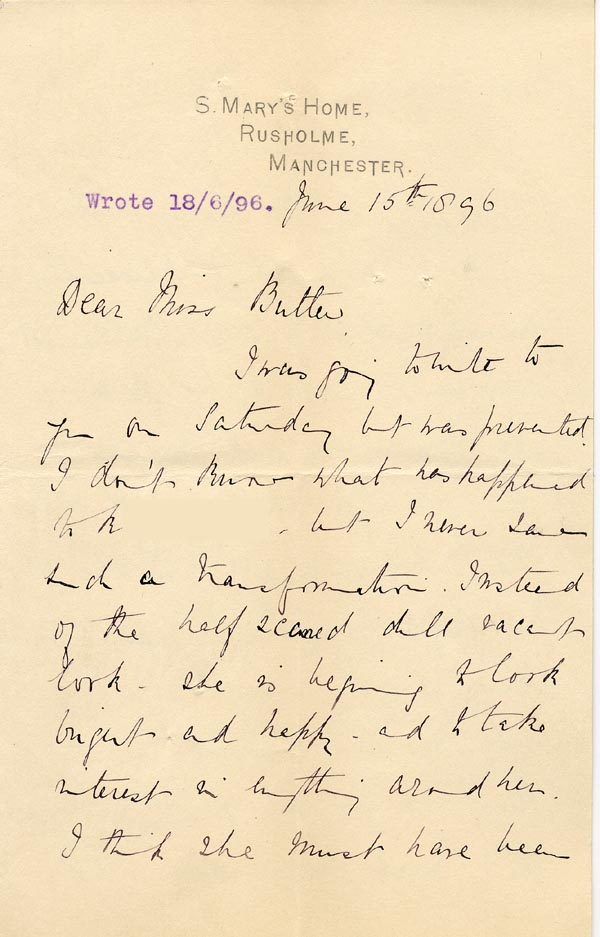 S. MARY'S HOME,
RUSHOLME,
MANCHESTER.
Wrote 18/6/96. June 15th 1896
Dear Miss Butter
I was going to write to
you on Saturday but was prevented.
I don't know what has happened
to K - but I never saw
such a transformation. Instead
of the half scared dull vacant
look - she is begining to look
bright and happy - and to take
interest in everything around her.
I think she must have been